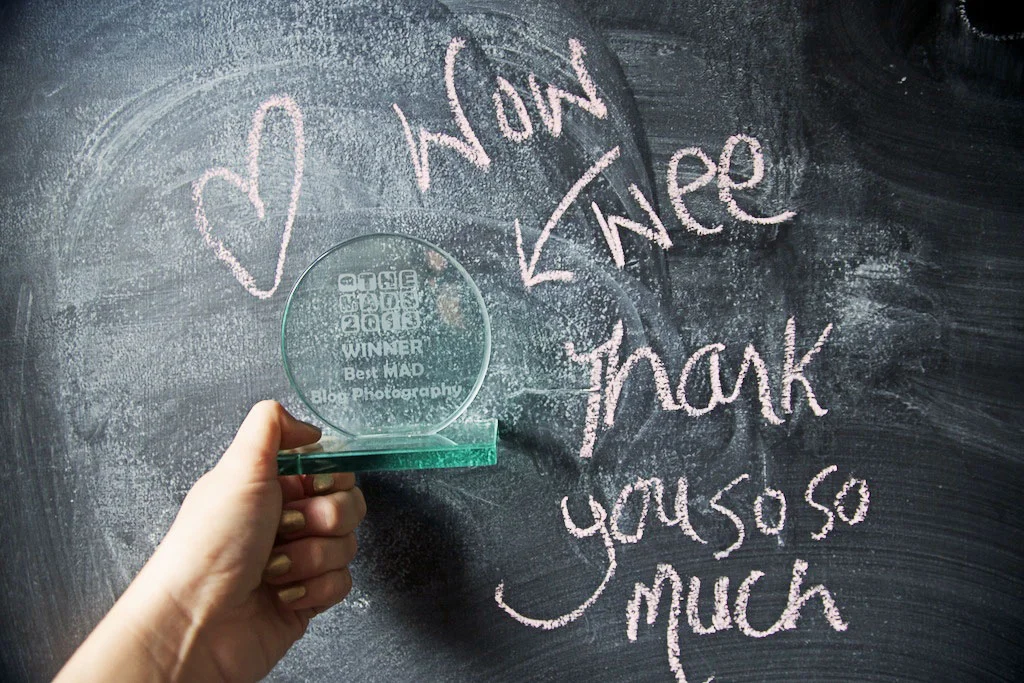 Wow
Wee
Thank
you so so
much
THE
MADS
2013
WINNER
Best MAD
Blog Photography